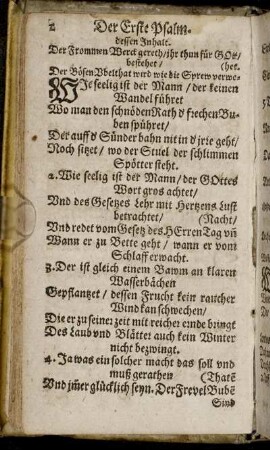 2
Der Erste Psalm.
dessen Inhalt.
Der Frommen Werck gereth/ ihr thun für GOtt/
bestehet/ (het.
Der Bösen Vbelthat wird wie die Sprew verwe-
WJe seelig ist der Mann/ der keinen
Wandel führet
Wo man den schnöden Rath ď frechen Bu-
ben spühret/
Der auff ď Sünder bahn nit in ď jrie geht/
Noch sitzet/ wo der Stuel der schlimmen
Spötter steht.
2. Wie seelig ist der Mann/ der GOttes
Wort gros achtet/
Vnd des Gesetzes Lehr mit Hertzens Lust
betrachtet/ (Nacht/
Vnd redet vom Gesetz des HErren Tag vñ
Wann er zu Bette geht/ wann er vom
Schlaff erwacht.
3. Der ist gleich einem Bawm an klaren
Wasserbächen
Gepflantzet/ dessen Frucht kein raucher
Wind kan schwechen/
Die er zu seiner zeit mit reicher einde bringt
Des Laub vnd Blätter auch kein Winter
nicht bezwingt.
4. Ja was ein solcher macht das soll vnd
muß gerathen (Thatē
Vnd jm̃er glücklich seyn. Der Frevel Bubē
Sind